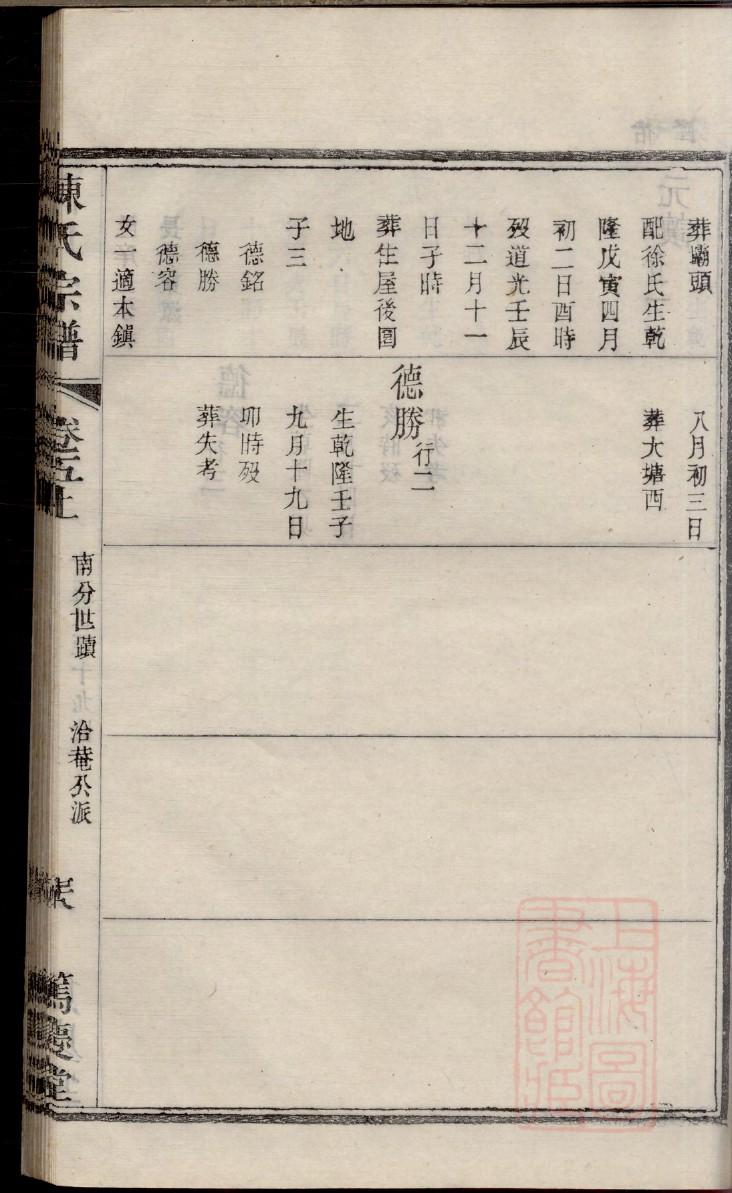 葬霸頭
配徐氏生乾
隆戊寅四月
初二日酉時
歿道光壬辰
十二月十一
日子時
葬住屋後園
地
子三
德銘
德勝
德容
女一適本鎮
八月初三日
葬大塘西
德勝行二
生乾隆壬子
九月十九日
卯時歿
葬失考
陳氏宗譜
卷五上
南分世蹟
洽菴公派
篤慶堂
上海圖
書館藏